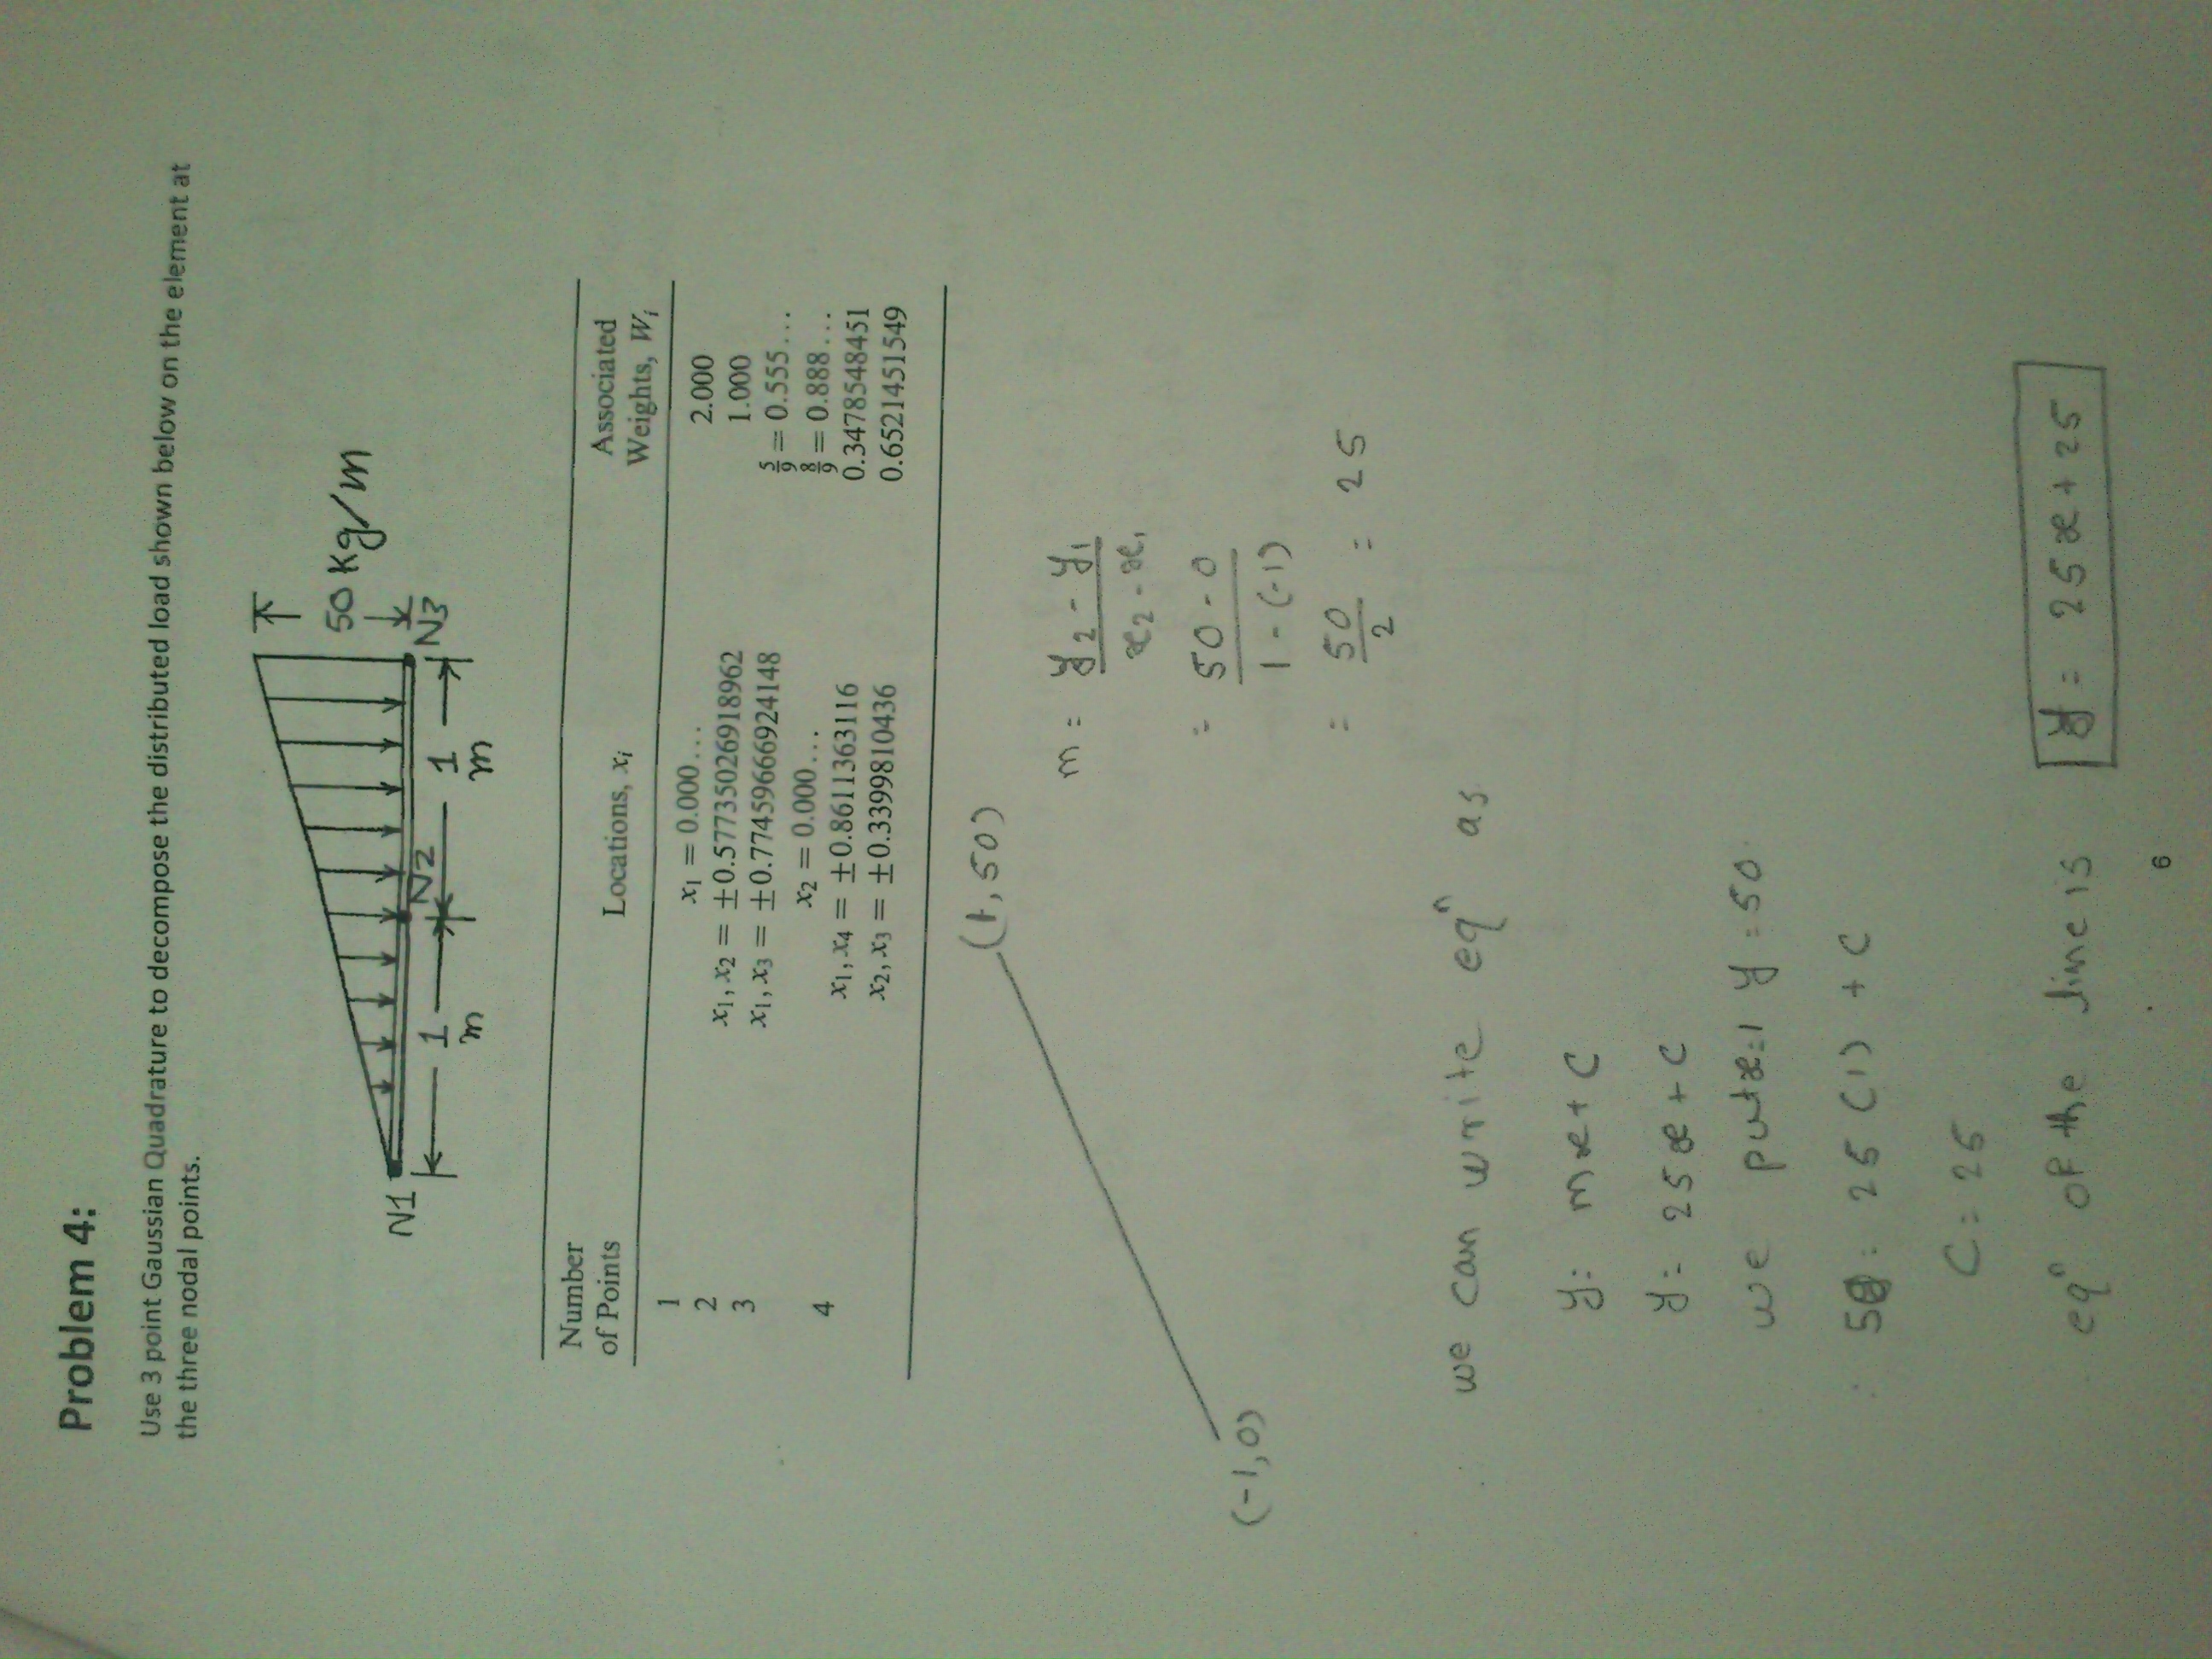 Problem 4:
Use 3 point Gaussian Quadrature to decompose the distributed load shown below on the element at
the three nodal points.
50 Kg/m
N1
N2
N3
1
m
1
m
Number
of Points
Locations, xᵢ
Associated
Weights, Wᵢ
1
x₁ = 0.000...
2.000
2
x₁, x₂ = ±0.57735026918962
1.000
3
x₁, x₃ = ±0.77459666924148
5/9 = 0.555...
x₂ = 0.000...
8/9 = 0.888...
4
x₁, x₄ = ±0.8611363116
0.3478548451
x₂, x₃ = ±0.3399810436
0.6521451549
(1,50)
(-1,0)
m = y₂ - y₁
x₂ - x₁
= 50 - 0
1 - (-1)
= 50/2 = 25
we can write eqⁿ as
y = mx + C
y = 25x + C
we put x=1 y = 50
50 = 25 (1) + C
C = 25
eqⁿ of the line is y = 25x + 25
6